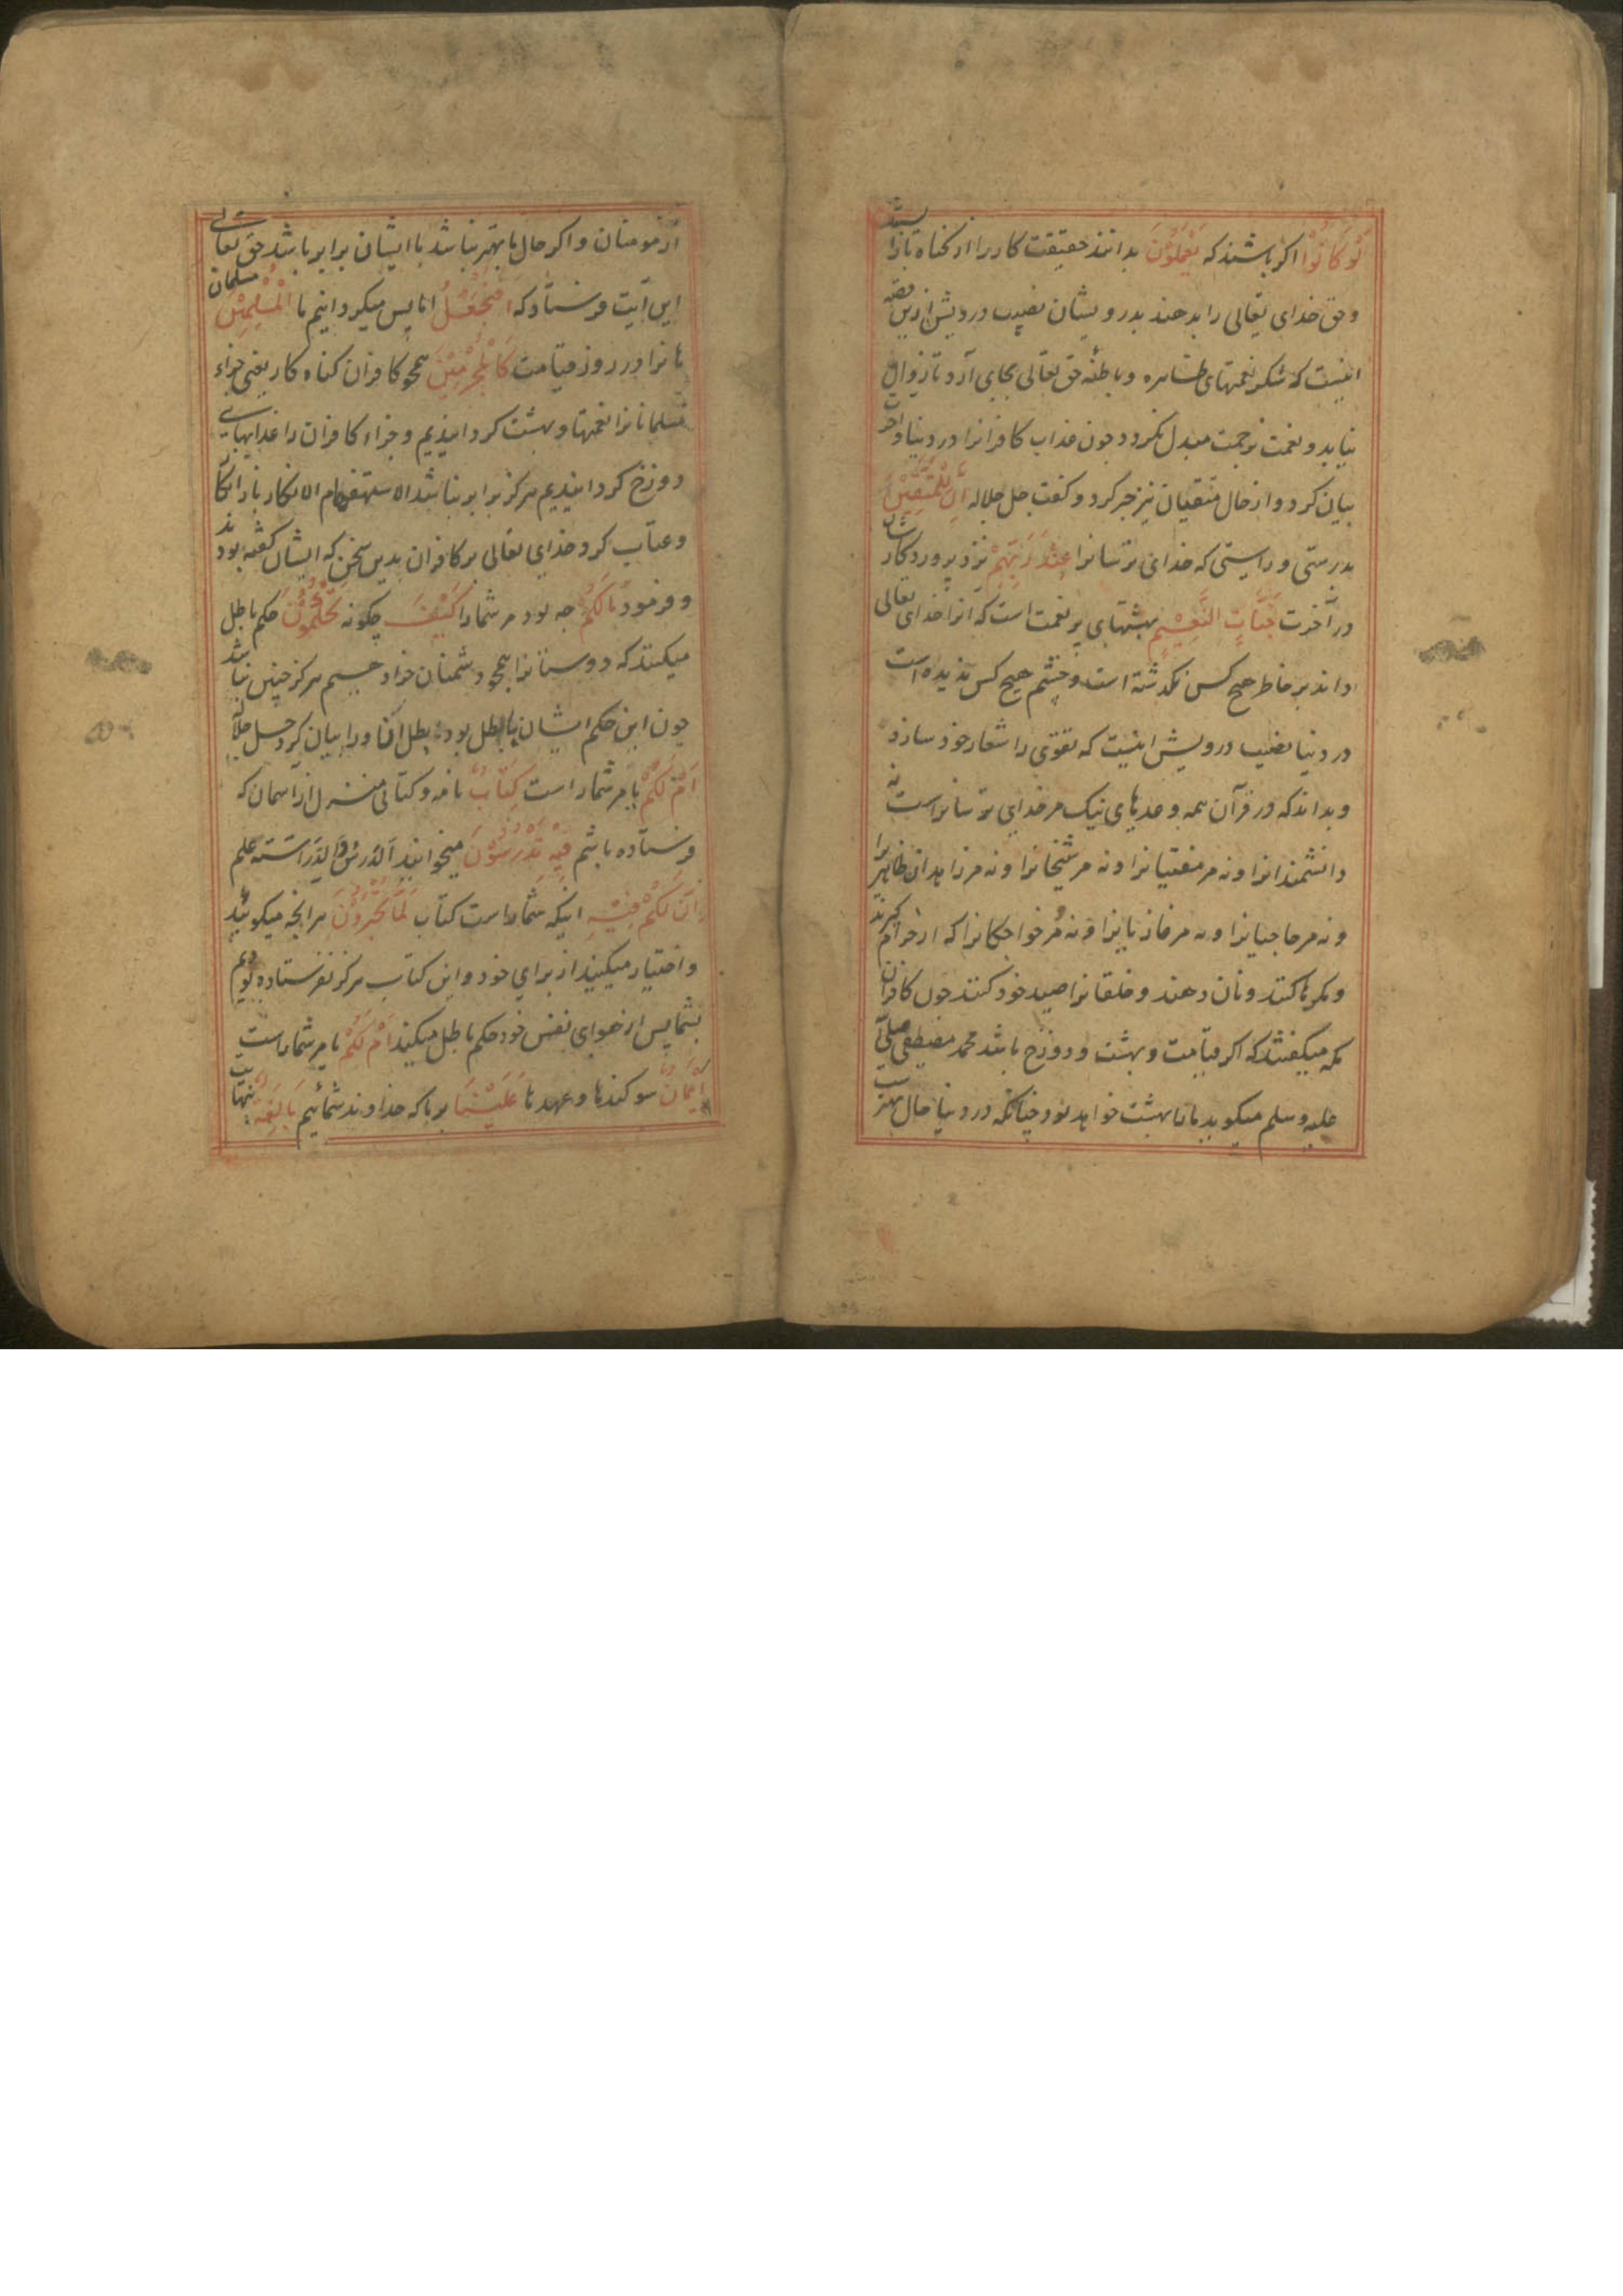 لَوْ كَانُوْا اکر باشند که يَعْلَمُوْنَ بدانند حقیقت کار را از کناه باز ایستند
و حق خدای تعالی را بدهند بدرویشان نصیب درویش ازین قصه
اینست که شکر نعمتهای ظاهره و باطنه حق تعالی بجای آرد تا زوال
نیابد و نعمت بزحمت مبدل نکردد چون عذاب کافرانرا در دنیا و آخرت
بیان کرد و از حال متقیان نیز خبر کرد و کفت جل جلاله اِنَّ لِلْمُتَّقِيْنَ
بدرستی و راستی که خدای ترسانرا عِنْدَ رَبِّهِمْ نزد پروردکار شان
در آخرت جَنَّاتِ النَّعِيْمِ بهشتهای پر نعمت است که انرا خدای تعالی
داند بر خاطر هیچ کس نکذشته است و چشم هیچ کس ندیده است
در دنیا نصیب درویش اینست که تقوی را شعار خود سازد
و بداند که در قرآن همه وعدهای نیک مر خدای ترسانراست نه
دانشمندانرا و نه مر مفتیانرا و نه مر شیخانرا و نه مر زاهدان ظاهر را
و نه مر حاجیانرا و نه مر غازیانرا و نه مر خواجکانرا که از حرام کیرند
و مکرها کنند و نان دهند و خلقانرا صید خود کنند چون کافران
مکه میکفتند که اکر قیامت و بهشت و دوزخ باشد محمد مصطفی صلی الله
علیه و سلم میکوید ما را بهشت خواهد بود چنانکه در دنیا حال بهترست
از مومنان و اکر حال ما بهتر نباشد با ایشان برابر باشد حق تعالی
این آیت فرستاد که اَفَنَجْعَلُ ایا پس میکردانیم ما الْمُسْلِمِيْنَ مسلمان
مانرا در روز قیامت كَالْمُجْرِمِيْنَ همچو کافران کناه کار یعنی جزاء
مسلمانانرا نعمتها و بهشت کردانیدیم و جزاء کافران را عذابهای
دوزخ کردانیدیم هرکز برابر نباشد الاستفهام الانکار باز انکار
و عتاب کرد خدای تعالی بر کافران بدین سخن که ایشان کفته بودند
و فرمود مَالَكُمْ چه بود مر شمارا كَيْفَ چکونه تَحْكُمُوْنَ حکم باطل
میکنند که دوستانرا همچو دشمنان خوار دهیم هرکز چنین نباشد
چون این حکم ایشان باطل بود بطلان او را بیان کرد جل جلاله
اَمْ لَكُمْ یا مر شماراست كِتَابٌ نامه و کتابی منزل از آسمان که
فرستاده باشم فِيْهِ تَدْرُسُوْنَ میخوانید اَلدَّرسُ وَالدِّرَاسَته علم
اِنَّ لَكُمْ فِيْهِ اینکه شماراست کتاب لَمَا تَخَيَّرُوْنَ هر انچه میکوئید
و اختیار میکنید از برای خود و این کتاب هرکز نفرستاده بودیم
بشما پس از هوای نفس خود حکم باطل میکنید اَمْ لَكُمْ یا مر شماراست
اَيْمَانٌ سوکندها و عهدها عَلَيْنَا بر ما که خداوند شمائیم بَالِغَةٌ نهایت